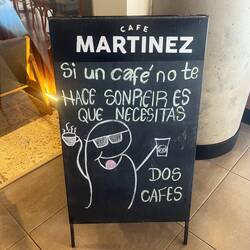 CAFE
MARTINEZ
Si un café no te
HACE SONREIR ES
QUE NECESITAS
DOS
CAFES